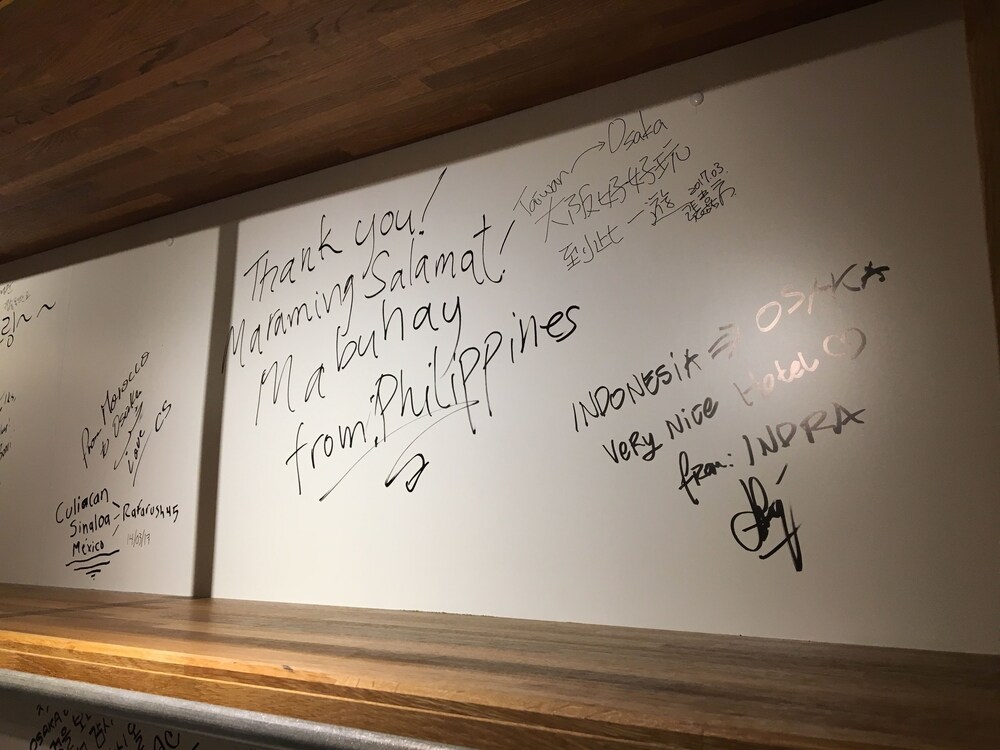 랑~~
From Morocco
to Osaka
i love CS
Culiacan
Sinaloa
México
Rafarush45
14/03/17
Thank you!
Maraming Salamat!
Mabuhay
from: Philippines
Taiwan → Osaka
大阪好好玩
到此一遊
2017.03.
INDONESIA ⇒ OSAKA
VERY NICE Hotel ♡
from: INDRA
OSAKA